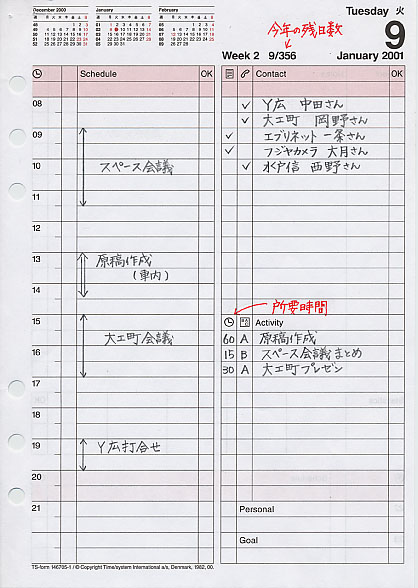 December 2000
January
February
Tuesday 火
9
今年の残日数
Week 2 9/356
January 2001
Schedule
OK
08
09
10
スペース会議
11
12
13
原稿作成
(車内)
14
15
大工町会議
16
17
18
19
Y広打合せ
20
21
Contact
OK
Y広 中田さん
大工町 岡野さん
エブリネット 一条さん
フジヤカメラ 大月さん
水戸信 西野さん
所要時間
Activity
OK
60 A 原稿作成
15 B スペース会議まとめ
30 A 大工町プレゼン
Personal
Goal
TS-form 146705-1 / © Copyright Time/system International a/s, Denmark, 1982, 00.